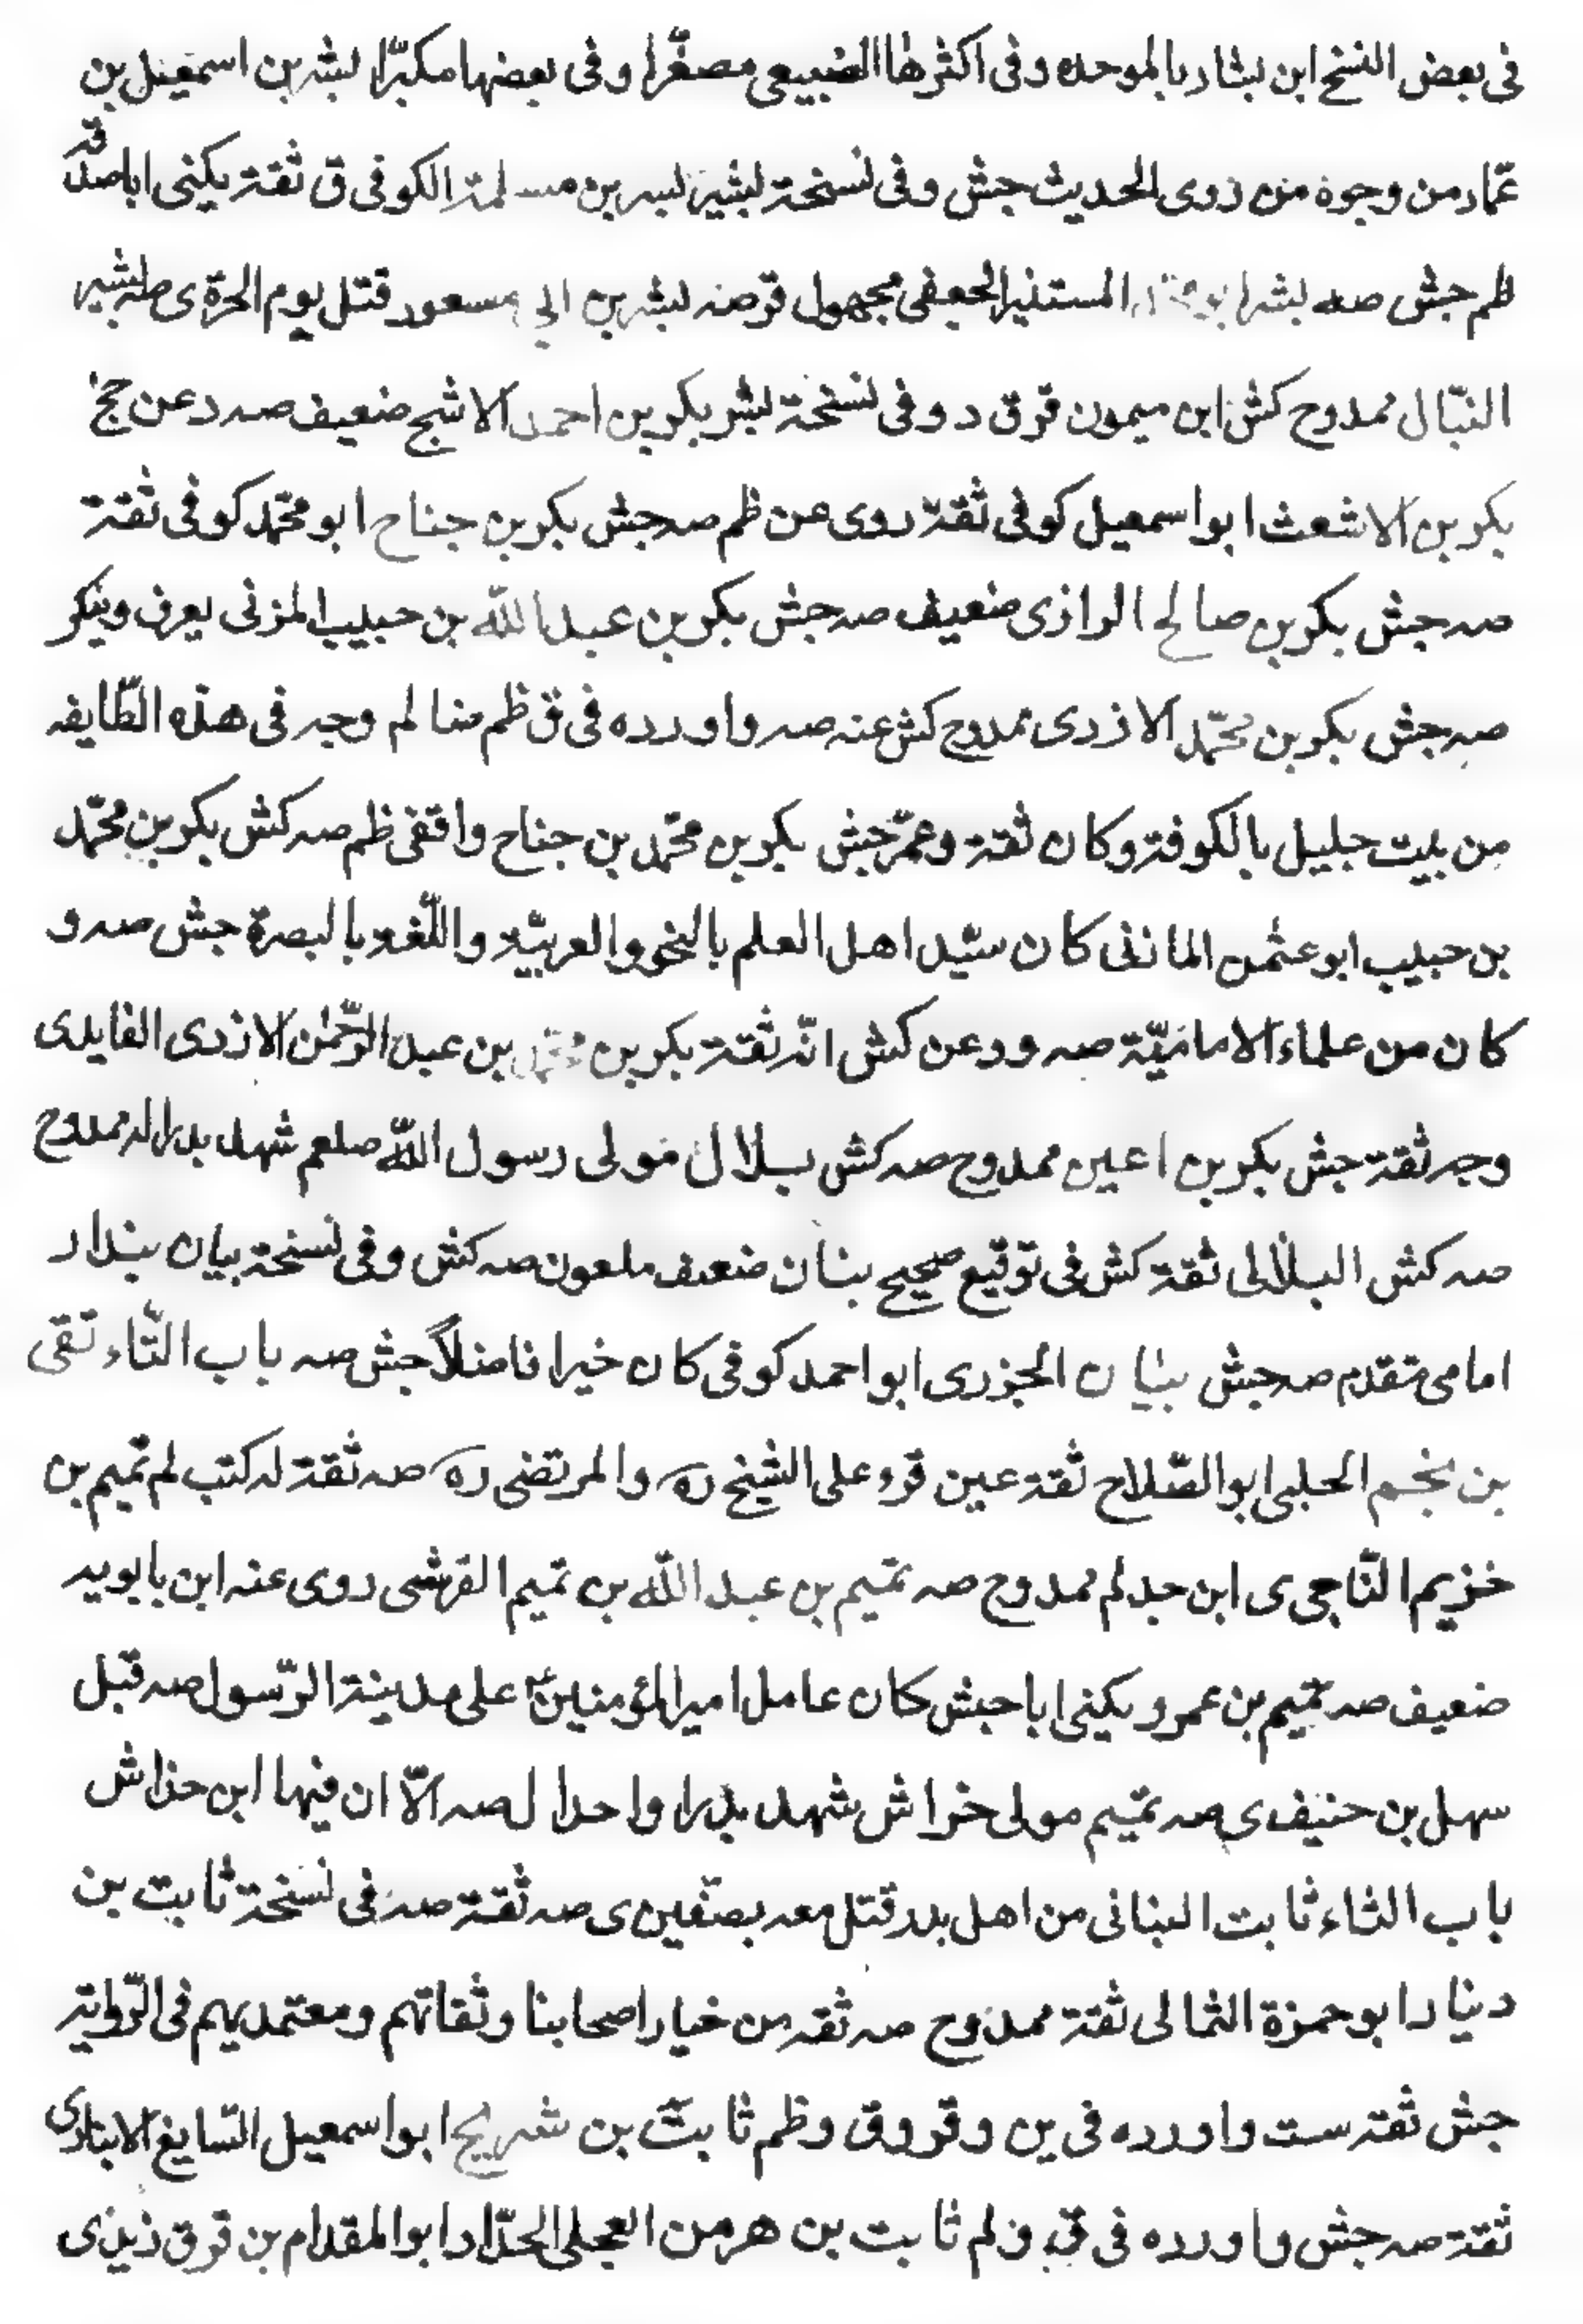 فى بعض النسخ ابن بشار بالموحده وفى اكثرها الضبيعى مصغّرا وفى بعضها مكبّرا بشر بن اسمعيل بن
عمّار من وجوه من روى الحديث جش وفى نسخة بشير بن مسلمة الكوفى ق ثقة يكنى اباصدقه
ظم جش صه بشر المستنير الجعفى مجهول قر صه بشر بن ابى مسعود قتل يوم الحرّة ى صه بشير
النبّال ممدوح كش ابن ميمون قر ق د وفى نسخة بشر بكر بن احمد الاشج ضعيف صه د عن جخ
بكر بن الاشعث ابو اسمعيل كوفى ثقة روى عن ظم صه جش بكر بن جناح ابو محمّد كوفى ثقة
صه جش بكر بن صالح الرازى ضعيف صه جش بكر بن عبدالله بن حبيب المزنى يعرف وينكر
صه جش بكر بن محمّد الازدى ممدوح كش عنه صه واورده فى ق ظم ضا لم وجه فى هذه الطّايفه
من بيت جليل بالكوفة وكان ثقة وعمّر جش بكر بن محمّد بن جناح واقفى ظم صه كش بكر بن محمّد
بن حبيب ابو عثمن المازنى كان سيّد اهل العلم بالنحو والعربيّة واللّغة بالبصرة جش صه و
كان من علماء الاماميّة صه ود عن كش انّه ثقة بكر بن محمّد بن عبد الرّحمن الازدى الغايدى
وجه ثقة جش بكر بن اعين ممدوح صه كش بلال مولى رسول اللّه صلعم شهد بدرا له ممدوح
صه كش البلالى ثقة كش فى توقيع صحيح بنان ضعيف ملعون صه كش وفى نسخة بيان بندار
امامى متقدم صه جش بيان الجزرى ابو احمد كوفى كان خيرا فاضلاً جش صه باب التّاء تقى
بن نجم الحلبى ابو الصّلاح ثقة عين قرء على الشيخ ره والمرتضى ره صه ثقة له كتب لم تميم بن
خزيم النّاجى ى ابن حدلم ممدوح صه تميم بن عبد اللّه بن تميم القرشى روى عنه ابن بابويه
ضعيف صه تميم بن عمرو يكنى ابا حبش كان عامل امير المؤمنين ع على مدينة الرّسول صه قبل
سهل بن حنيف ى صه تميم مولى خراش شهد بدرا واحدا ل صه الاّ ان فيها ابن خداش
باب الثاء ثابت البنانى من اهل بدر قتل معه بصفّين ى صه ثقة صه فى نسخة ثابت بن
دينار ابو حمزة الثمالى ثقة ممدوح صه ثقه من خيار اصحابنا وثقاتهم ومعتمديهم فى الرّواية
جش ثقة ست واورده فى ين وقر وق وظم ثابت بن شريح ابو اسمعيل الصّايغ الانبارى
ثقة صه جش واورده فى ق ولم ثابت بن هرمز العجلى الحدّاد ابو المقدام بن قر ق زيدى